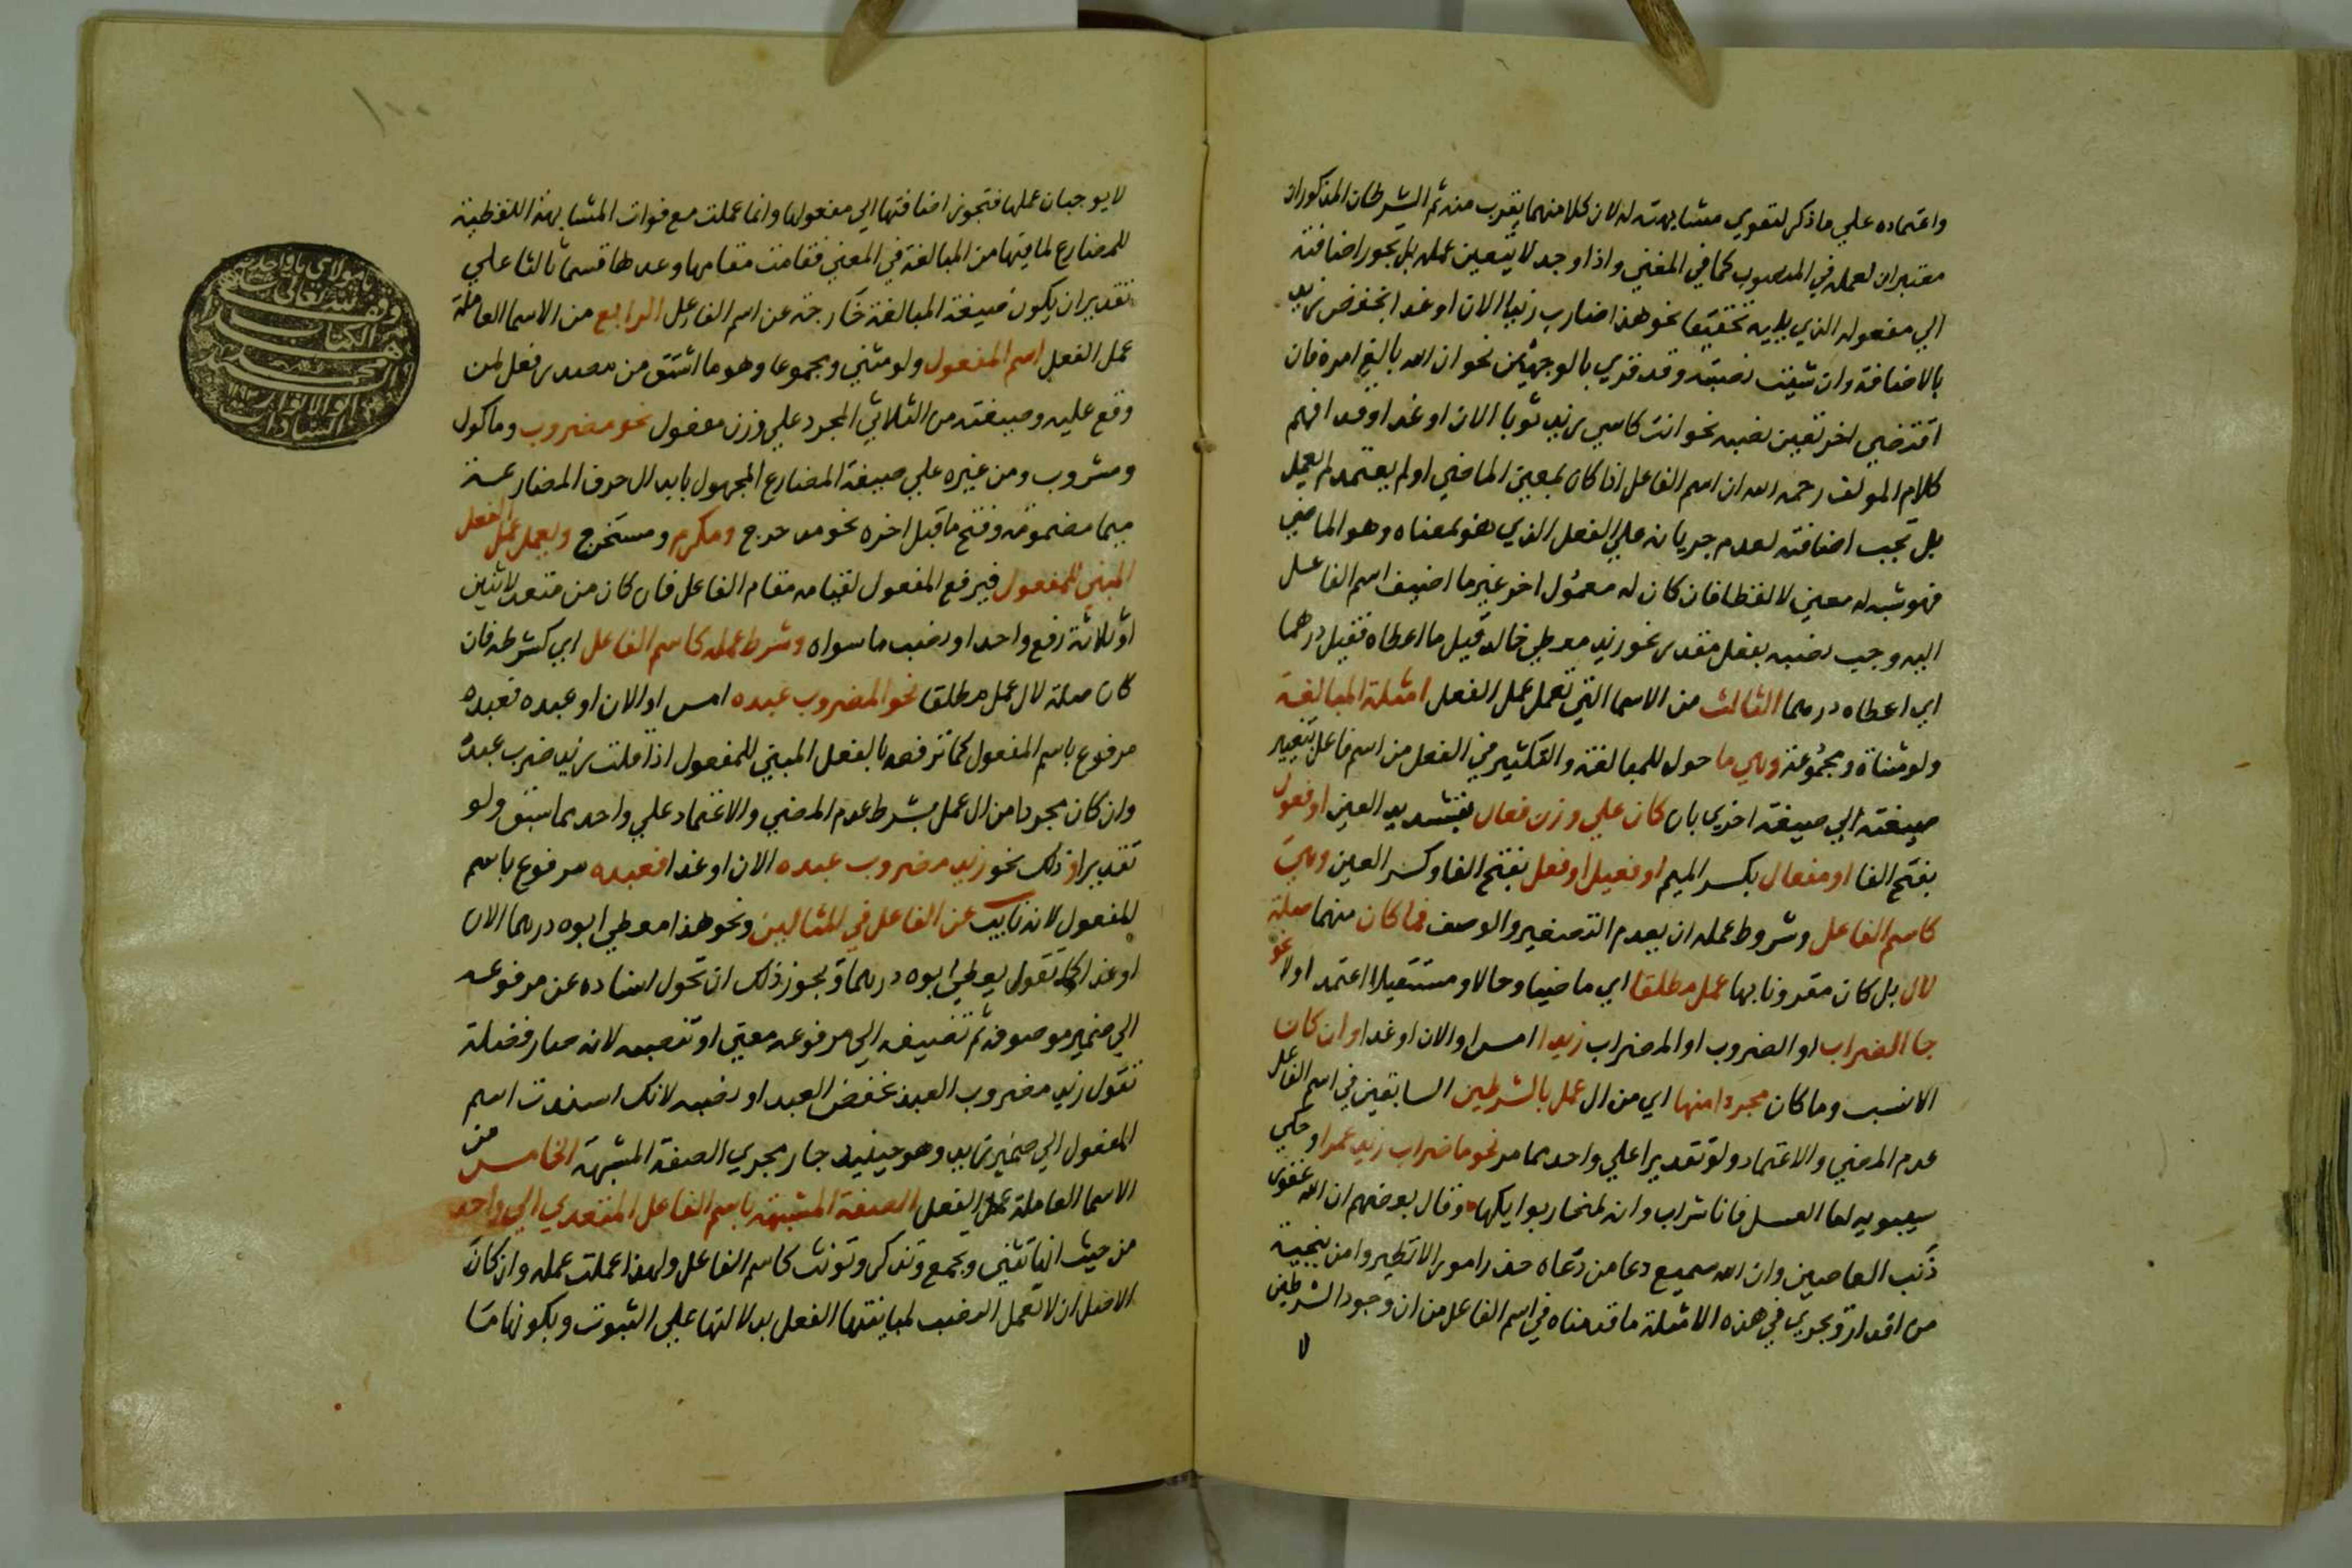 واعتماده علي ما ذكر لتقوي مشابهته له لان كلا منهما يقرب منه ثم الشرطان المذكوران
معتبران لعمله في المنصوب كما في المغني واذا وجد لا يتعين عمله بل يجوز اضافته
الي مفعوله الذي يليه تخفيفا نحو هذا ضارب زيد الان او غدا بخفض زيد
بالاضافة وان شيت نصبته وقد قري بالوجهين نحو ان الله بالغ امره فان
اقتضي اخر تعين نصبه نحو انت كاسي زيد ثوبا الان او غدا وقد افهم
كلام المولف رحمه الله ان اسم الفاعل اذا كان بمعني الماضي او لم يعتمد لم يعمل
بل تجب اضافته لعدم جريانه علي الفعل الذي هو بمعناه وهو الماضي
فهو شبه له معني لا لفظا فان كان له معمول اخر غير ما اضيف اسم الفاعل
اليه وجب نصبه بفعل مقدر نحو زيد معطي خالد قيل ما اعطاه فقيل درهما
اي اعطاه درهما الثالث من الاسما التي تعمل عمل الفعل امثلة المبالغة
ولو مثناة ومجموعة وهي ما حول للمبالغة والتكثير في الفعل من اسم فاعل بتغيير
صيغته الي صيغة اخري بان كان علي وزن فعال بتشديد العين او فعول
بفتح الفا او مفعال بكسر الميم او فعيل او فعل بفتح الفا وكسر العين وهي
كاسم الفاعل وشروط عمله ان بعدم التصغير والوصف فما كان منهما صلة
لال بل كان مقرونا بها عمل مطلقا اي ماضيا وحالا ومستقبلا اعتمد اولا نحو
جا الضراب او الضروب او المضراب زيدا امس او الان او غدا وان كان
الانسب وما كان مجردا منها اي من ال عمل بالشرطين السابقين في اسم الفاعل
عدم المضي والاعتماد ولو تقديرا علي واحد مما مر نحو ما ضراب زيد عمرا وحكي
سيبويه اما العسل فانا شراب وانه لمنحار بوايكها وقال بعضهم ان الله غفور
ذنب العاصين وان الله سميع دعا من دعاه حذر امورا لا تطير وامن بنجيه
من اقدار ويجري في هذه الامثلة ما قدمناه في اسم الفاعل من ان وجود الشرطين
لا
لا يوجبان عملها فتجوز اضافتها الي مفعولها وانما عملت مع فوات المشابهة اللفظية
للمضارع لما فيها من المبالغة في المعني فقامت مقامها وعدها قسما ثالثا علي
تقدير ان يكون صيغة المبالغة خارجة عن اسم الفاعل الرابع من الاسما العاملة
عمل الفعل اسم المفعول ولو مثني ومجموعا وهو ما اشتق من مصدر فعل لمن
وقع عليه وصيغته من الثلاثي المجرد علي وزن مفعول نحو مضروب وماكول
ومشروب ومن غيره علي صيغة المضارع المجهول بابدال حرف المضارعة
ميما مضمومة وفتح ما قبل اخره نحو مدحرج ومكرم ومستخرج ويعمل عمل الفعل
المبني للمفعول فيرفع المفعول لقيامه مقام الفاعل فان كان من متعد لاثنين
او ثلاثة رفع واحدا ونصب ما سواه وشرط عمله كاسم الفاعل اي كشرطه فان
كان صلة لال عمل مطلقا نحو المضروب عبده امس او الان او عبده فعبده
مرفوع باسم المفعول كما ترفعه بالفعل المبني للمفعول اذا قلت زيد ضرب عبده
وان كان مجردا من ال عمل بشرط عدم المضي والاعتماد علي واحد مما سبق ولو
تقديرا وذلك نحو زيد مضروب عبده الان او غدا فعبده مرفوع باسم
المفعول لانه نايب عن الفاعل في المثالين ونحو هذا معطي ابوه درهما الان
او غدا كما تقول يعطي ابوه درهما ويجوز ذلك ان تحول اسناده عن مرفوعه
الي ضمير موصوفه ثم تضيفه الي مرفوعه معني او تنصبه لانه صار فضلة
تقول زيد مضروب العبد بخفض العبد او نصبه لانك اسندت اسم
المفعول الي ضمير زيد وهو حينيذ جار مجري الصفة المشبهة الخامس من
الاسما العاملة عمل الفعل الصفة المشبهة باسم الفاعل المتعدي الي واحد
من حيث انها تثني وتجمع وتذكر وتونث كاسم الفاعل ولهذا عملت عمله وان كان
الاصل ان لا تعمل النصب لمباينتها الفعل بدلالتها علي الثبوت وبكونها ما